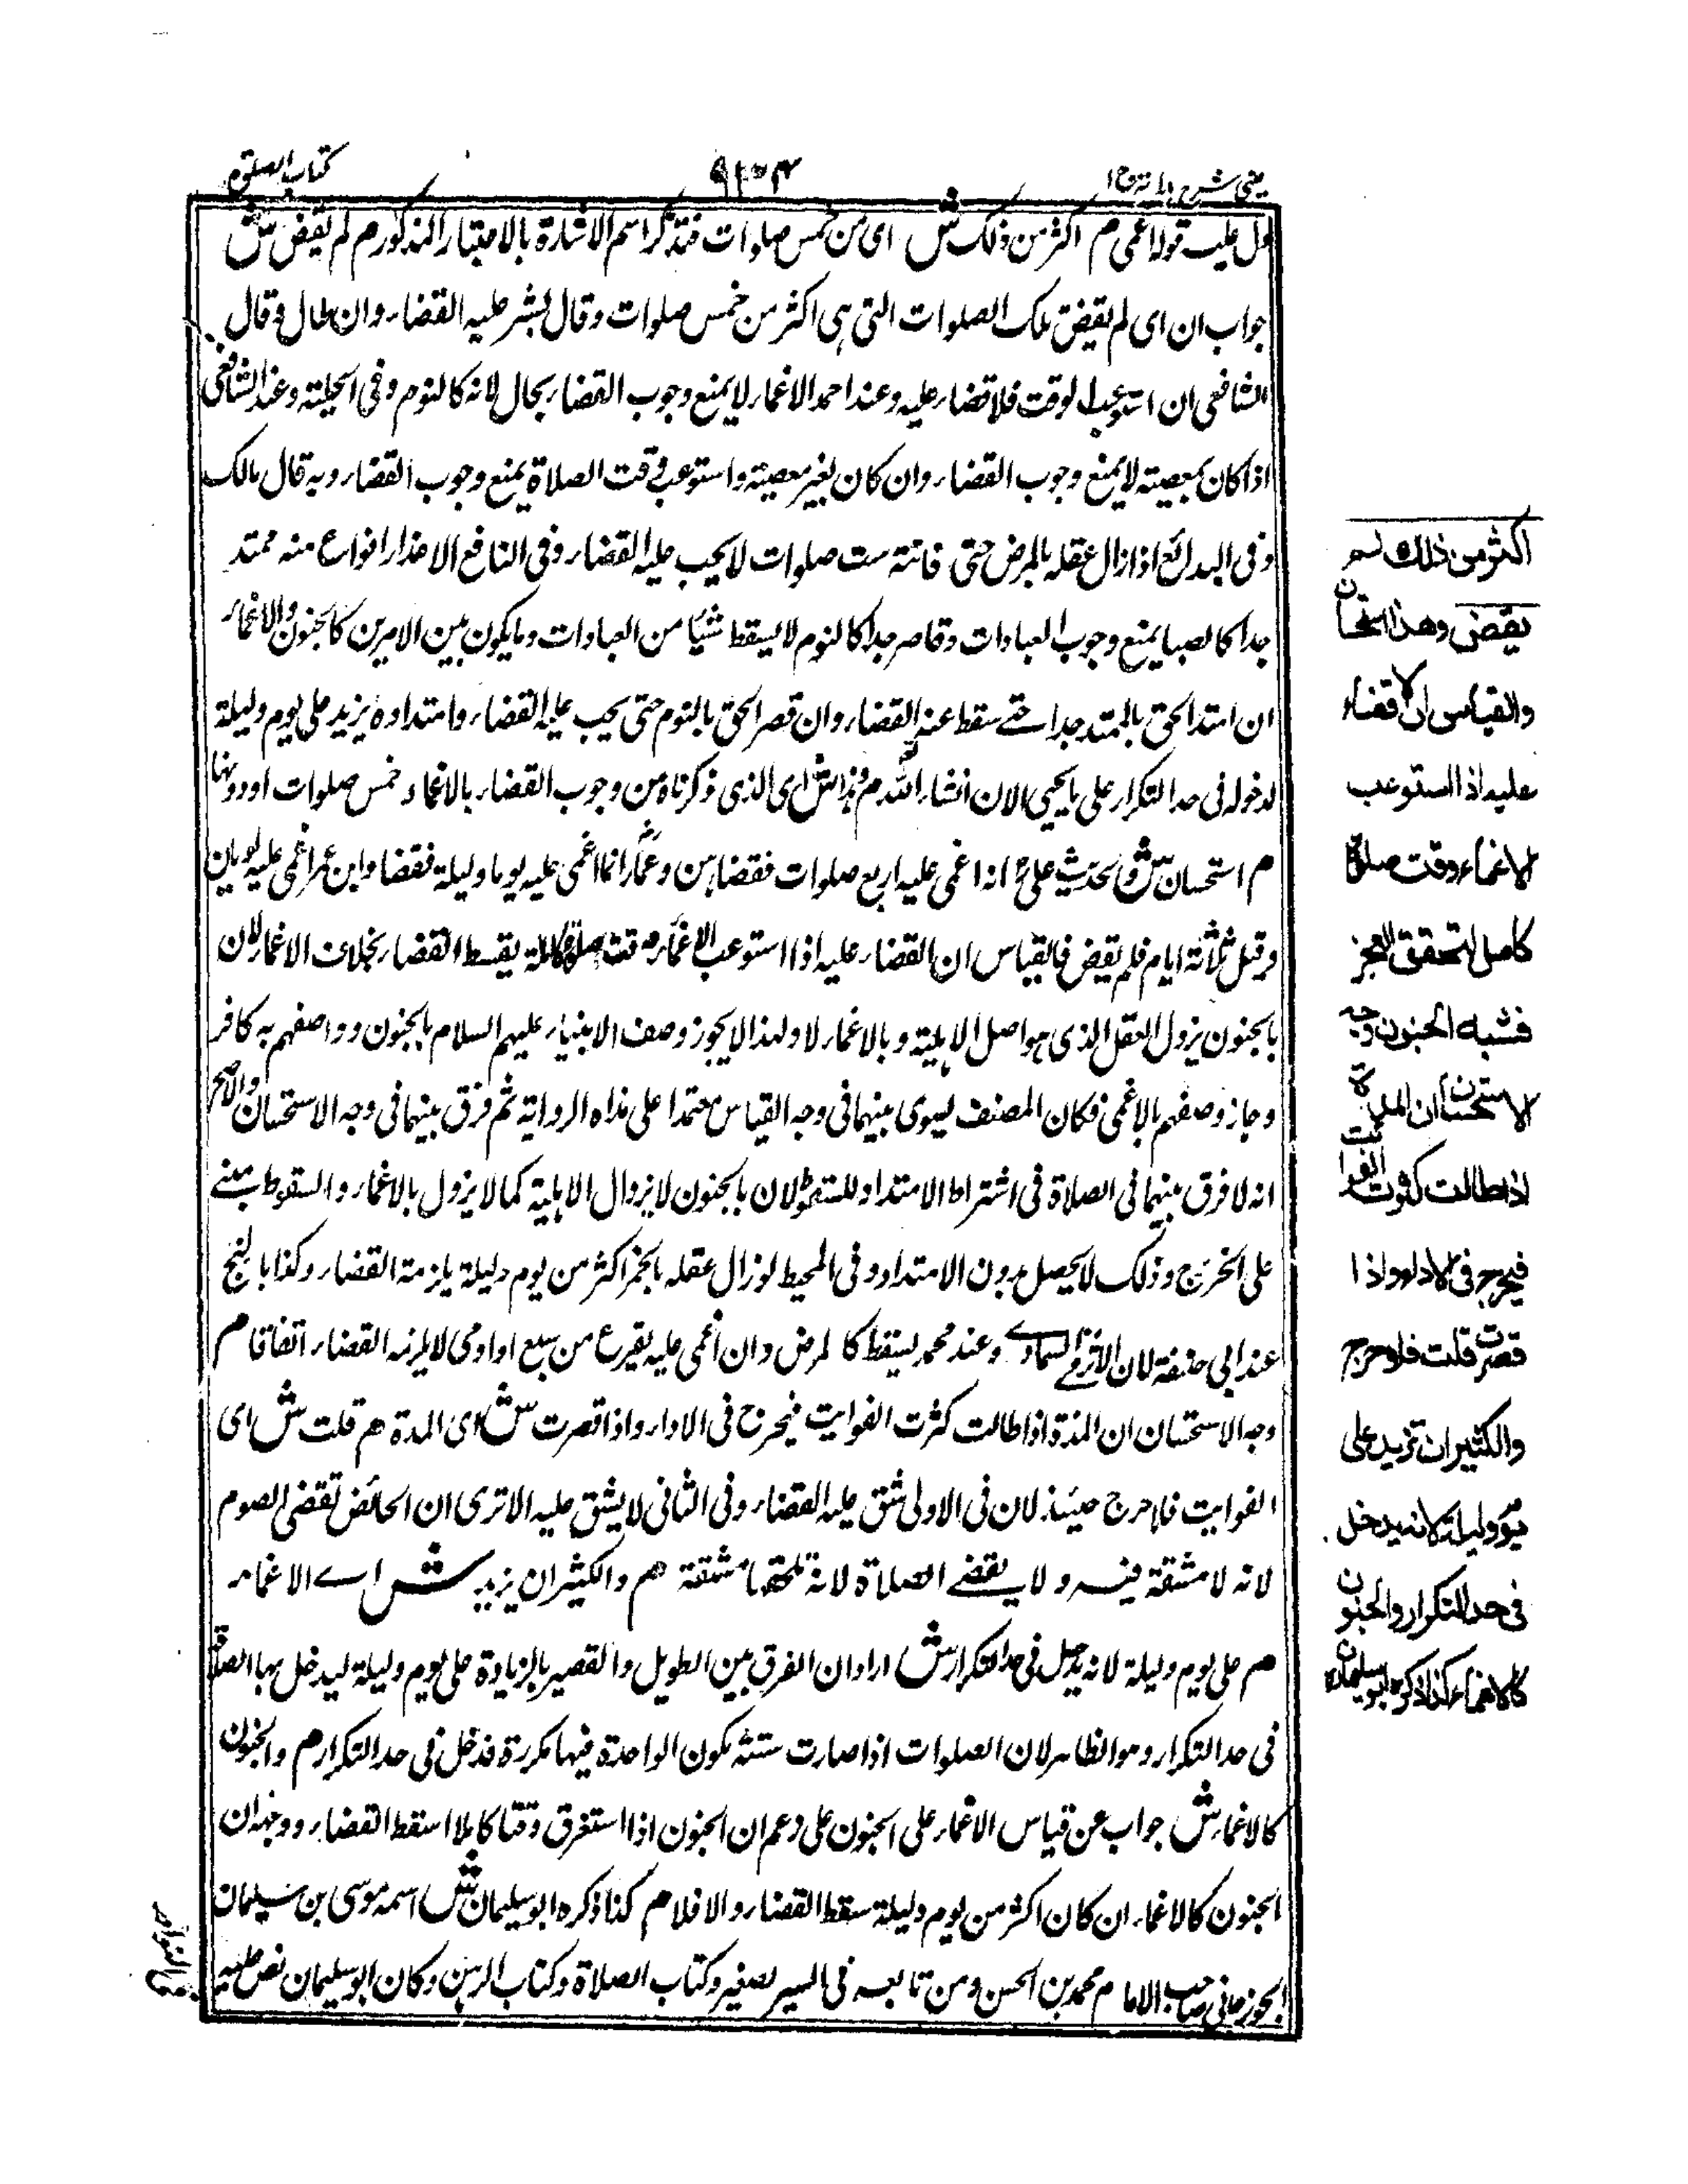 عينى شرح هداية ج ا
٩٢٣
كتاب الصلوة
دل عليه قوله اغمى م اكثر من ذلك ش اى من خمس صلوات فتذكر اسم الاشارة بالاعتبار المذكور م لم يقض ش
جواب ان اى لم يقض تلك الصلوات التى هى اكثر من خمس صلوات وقال بشر عليه القضاء وان طال وقال
الشافعى ان استوعب الوقت فلا قضاء عليه وعند احمد الاغماء لا يمنع وجوب القضاء بحال لانه كالنوم وفى الحلية وعند الشافعى
اذا كان بمعصية لا يمنع وجوب القضاء وان كان بغير معصية واستوعب وقت الصلاة يمنع وجوب القضاء وبه قال مالك
وفى البدائع اذا زال عقله بالمرض حتى فاتته ست صلوات لا يجب عليه القضاء وفى النافع الاعذار انواع منه ممتد
جدا كالصبا يمنع وجوب العبادات وقاصر جدا كالنوم لا يسقط شيئا من العبادات وما يكون بين الامرين كالجنون والاغماء
ان امتد الحق بالممتد جدا حتے سقط عنه القضاء وان قصر الحق بالنوم حتى يجب عليه القضاء وامتداده يزيد على يوم وليلة
لدخوله فى حد التكرار على ما يجيى الان انشاء الله م وهذا ش اى الذى ذكرناه من وجوب القضاء بالاغماء خمس صلوات او دونها
م استحسان ش لحديث على انه اغمى عليه اربع صلوات فقضاهن وعمار انما اغمى عليه يوما وليلة فقضا وابن عمر اغمى عليه يومان
وقيل ثلثة ايام فلم يقض فالقياس ان القضاء عليه اذا استوعب الاغماء وقت صلوة كاملة يقسط القضاء بخلاف الاغماء لان
بالجنون يزول العقل الذى هو اصل الاهلية وبالاغماء لا ولهذا لا يجوز وصف الانبياء عليهم السلام بالجنون وواصفهم به كافر
وجاز وصفهم بالاغمى فكان المصنف يسوى بينهما فى وجه القياس معتمدا على هذاه الرواية ثم فرق بينهما فى وجه الاستحسان والاصح
انه لا فرق بينهما فى الصلاة فى اشتراط الامتداد للسقوط لان بالجنون لا يزوال الاهلية كما لا يزول بالاغماء والسقوط مبنے
على الحرج وذلك لا يحصل بدون الامتداد وفى المحيط لو زال عقله بالخمر اكثر من يوم وليلة يلزمه القضاء وكذا بالبنج
عند ابى حنيفة لان وعند محمد يسقط كا لمرض وان اغمى عليه بفزع من سبع او ادمى لا يلزمه القضاء اتفاقا م
وجه الاستحسان ان المدة اذا طالت كثرت الفوايت فيحرج فى الاداء واذا قصرت ش اى المدة هم قلت ش اى
الفوايت فلا حرج حينئذ لان فى الاولى شق عليه القضاء وفى الثانى لا يشق عليه الاترى ان الحائض تقضى الصوم
لانه لا مشقة فيه ولا يقضے الصلاة لانه تلحقها مشقة هم والكثير ان يزيد ش اے الاغماء
هم على يوم وليلة لانه يدخل فى حد التكرار ش اراد ان الفرق بين الطويل والقصير بالزيادة على يوم وليلة ليدخل بها الصلاة
فى حد التكرار وهو الظاهر لان الصلوات اذا صارت ستة يكون الواحدة فيها مكررة فدخل فى حد التكرار م والجنون
كالاغماء ش جواب عن قياس الاغماء على الجنون على دعم ان الجنون اذا استغرق وقتا كاملا اسقط القضاء ووجهه ان
الجنون كالاغماء ان كان اكثر من يوم وليلة سقط القضاء والا فلا م كذا ذكره ابو سليمان ش اسمه موسى بن سليمان
الجوزجانى صاحب الامام محمد بن الحسن ومن تابعه فى السير الصغير وكتاب الصلاة وكتاب الرهن وكان ابو سليمان نص عليه
اكثر من ذلك لم
يقض وهذا استحسان
والقياس ان لا قضاء
عليه اذا استوعب
الاغماء وقت صلاة
كاملا لتحقق العجز
فشبه الجنون وجه
الاستحسان ان المدة
اذا طالت كثرت الفوائت
فيحرج فى الاداء واذا
قصرت قلت فلا حرج
والكثير ان تزيد على
يوم وليلة لانه يدخل
فى حد التكرار والجنون
كالاغماء كذا ذكره ابو سليمان